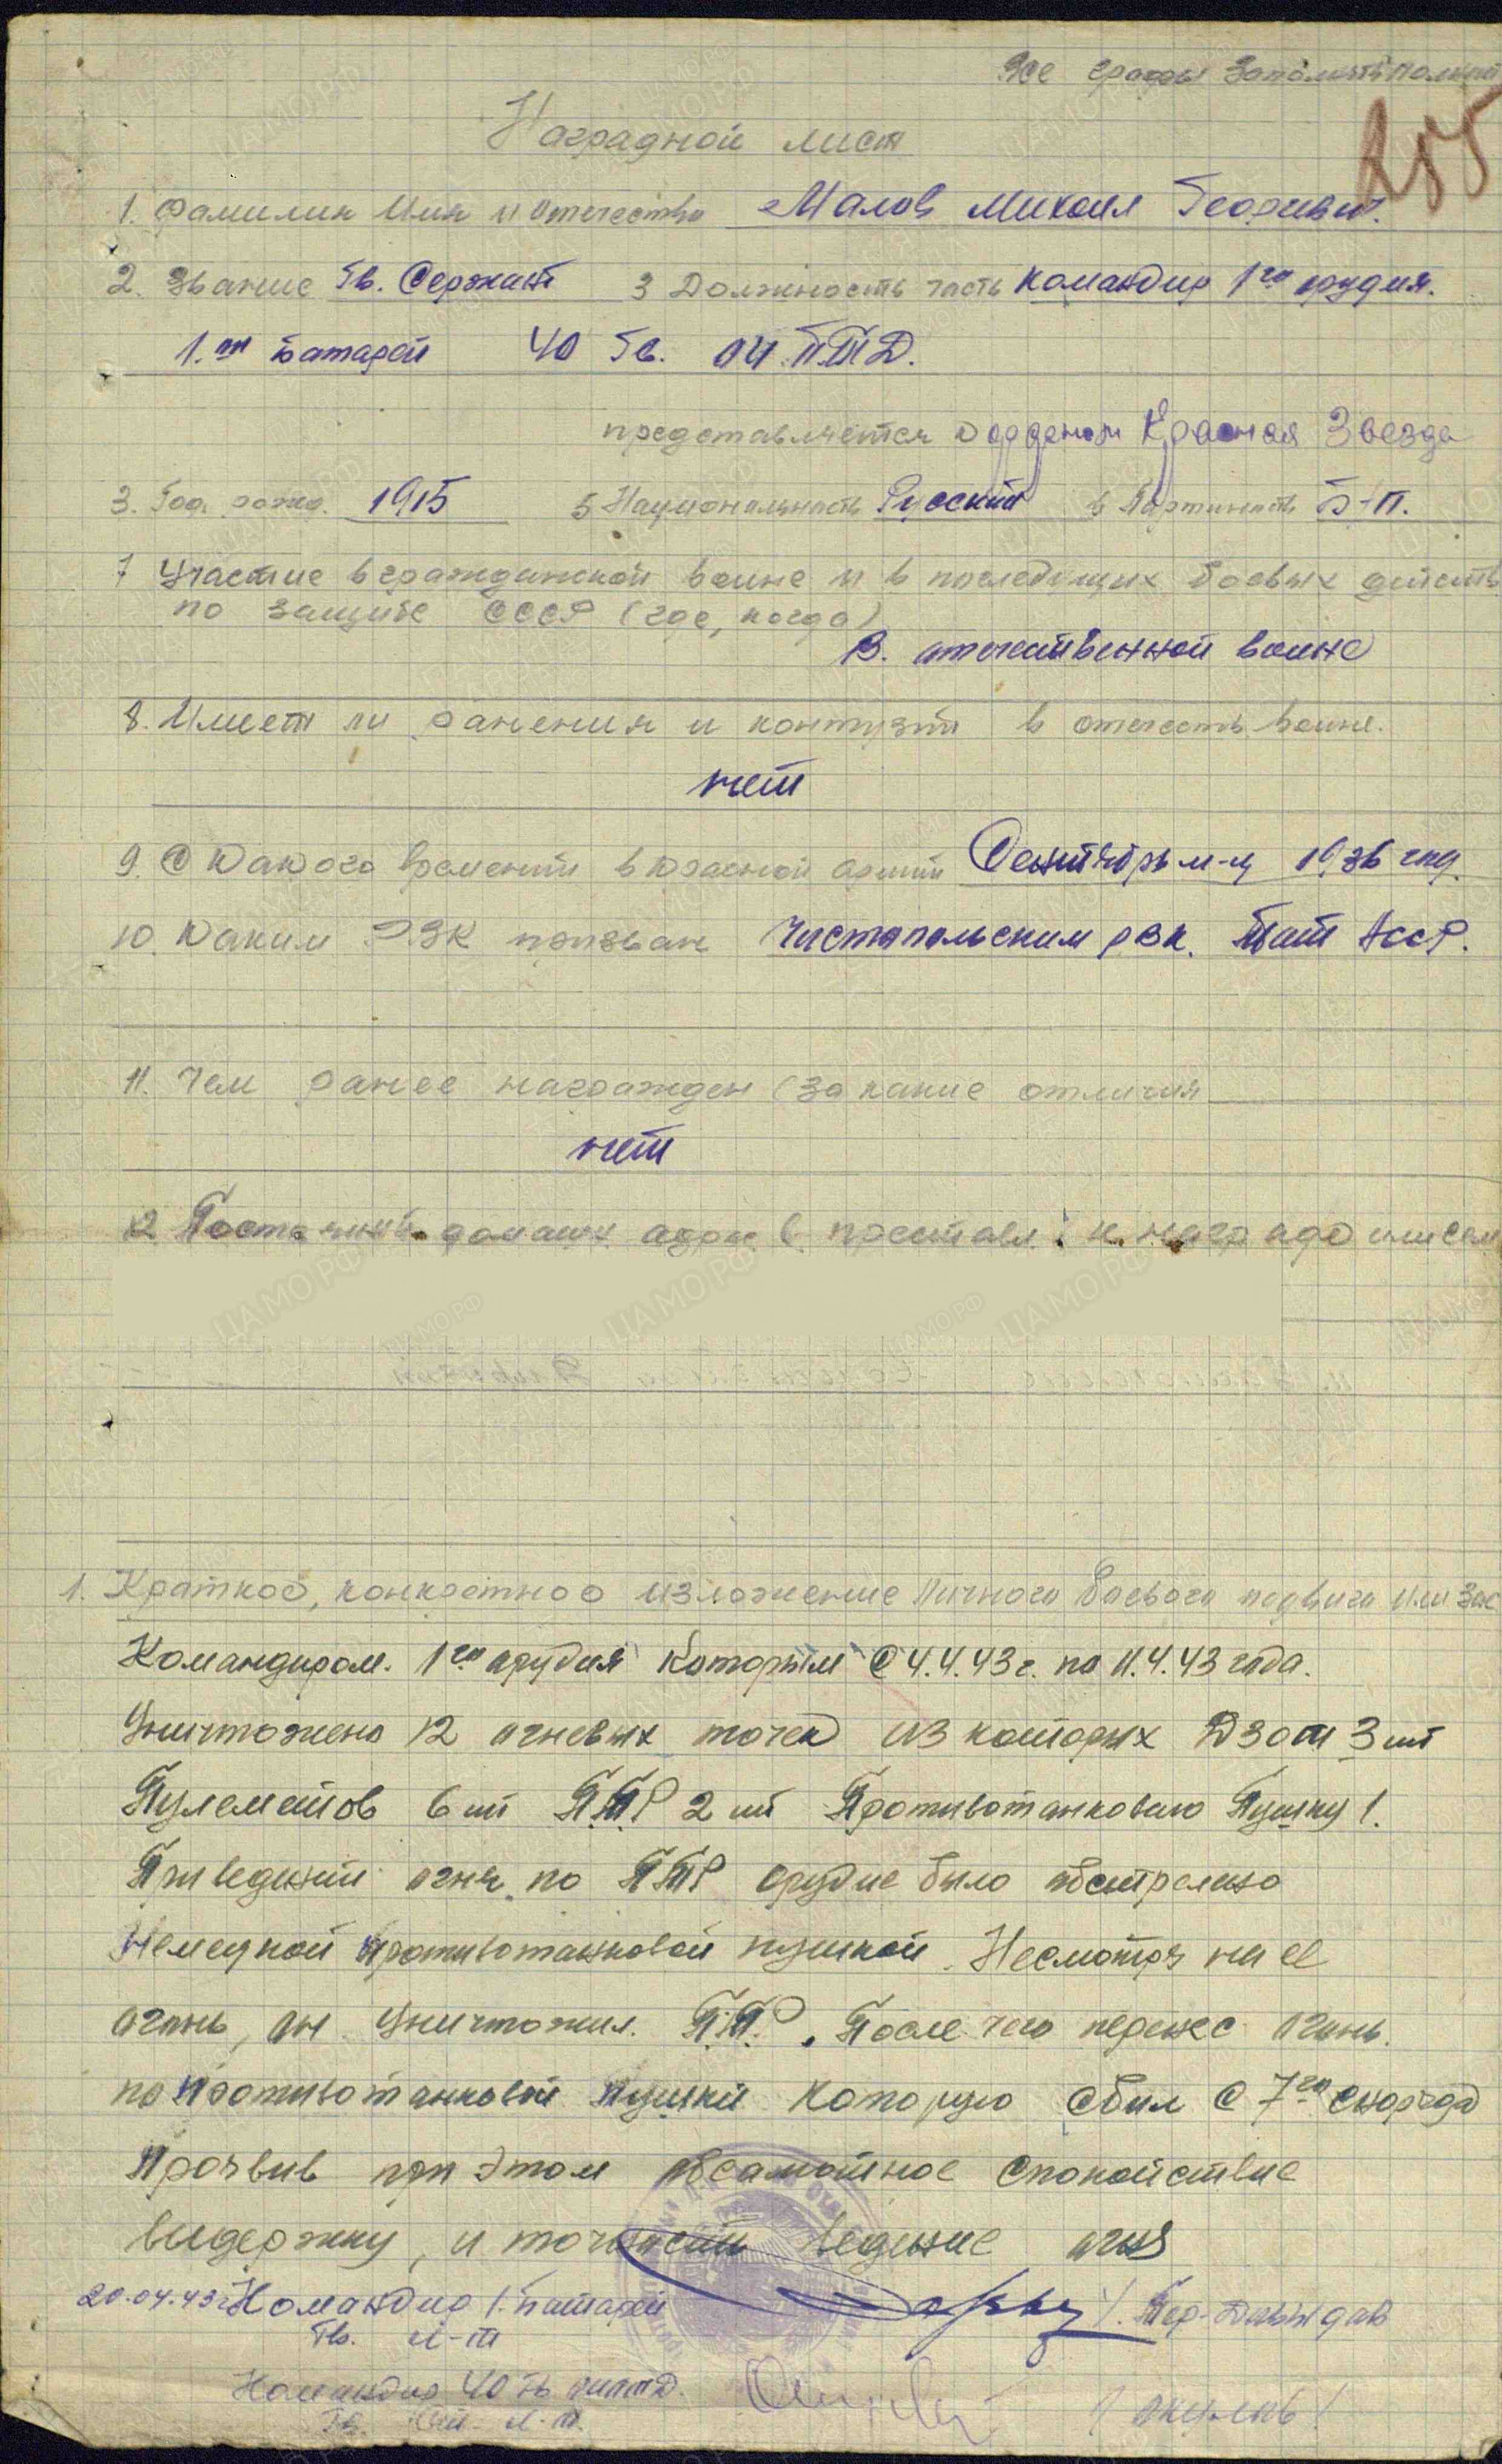 Все графы заполнять полностью
255
Наградной лист
1. Фамилия Имя и Отечество Малов Михаил Георгиевич.
2. Звание Гв. Сержант 3 Должность часть Командир 1го орудия.
1.ой Батареи 40 Гв. ОИПТД.
представляется к орденом Красная Звезда
3. Год. рожд. 1915 5 Национальность Русский 6 Партийность Б-П.
7 Участие в гражданской воине и в последующих боевых действ
по защите СССР (где, когда)
В. отечественной воине
8. Имеет ли ранения и контузии в отечеств. воине.
нет
9. С какого времени в Красной армии Сентябрь м-ц 1936 год.
10 Каким РВК призван Чистопольским РВК. Тат АССР.
11. Чем ранее награжден (за какие отличия
нет
12 Постоянный домашн адрес представл. к награде и
1. Краткое, конкретное изложение личного боевого подвига или зас
Командиром. 1го орудия которым с 4.4.43 г. по 11.4.43 года.
Уничтожено 12 огневых точек из которых Дзот 3 шт
Пулеметов 6 шт ПТР 2 шт Противотанковую Пушку 1.
При ведении огня по ПТР орудие было обстрелено
Немецкой противотанковой пушкой. Несмотря на ее
огонь, он уничтожил. ПТР. После чего перенес огонь.
по противотанковой пушки которую сбил с 7го снаряда
Проявив при этом обсалютное спокойствие
выдержку, и точности ведение огня
20.04.43г Командир 1. Батареи /. Тер-Давыдов
Гв. Л-т
Командир 40 Гв оиптд.
Гв. л-т.